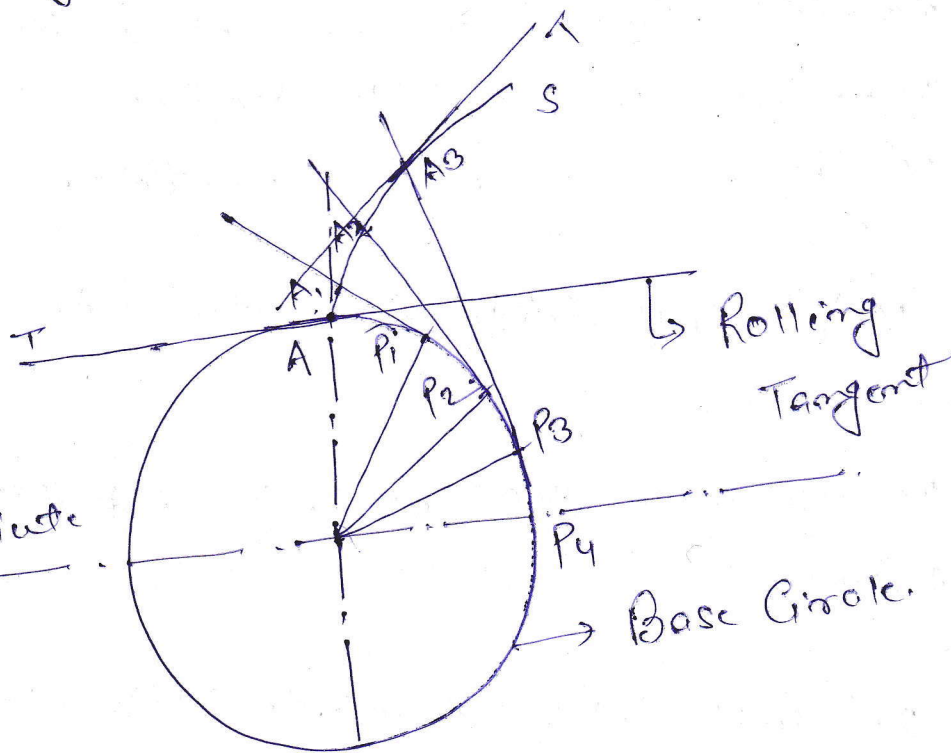 S
A3
A2
A1
T
A
P1
P2
P3
P4
Rolling
Tangent
Base Circle.